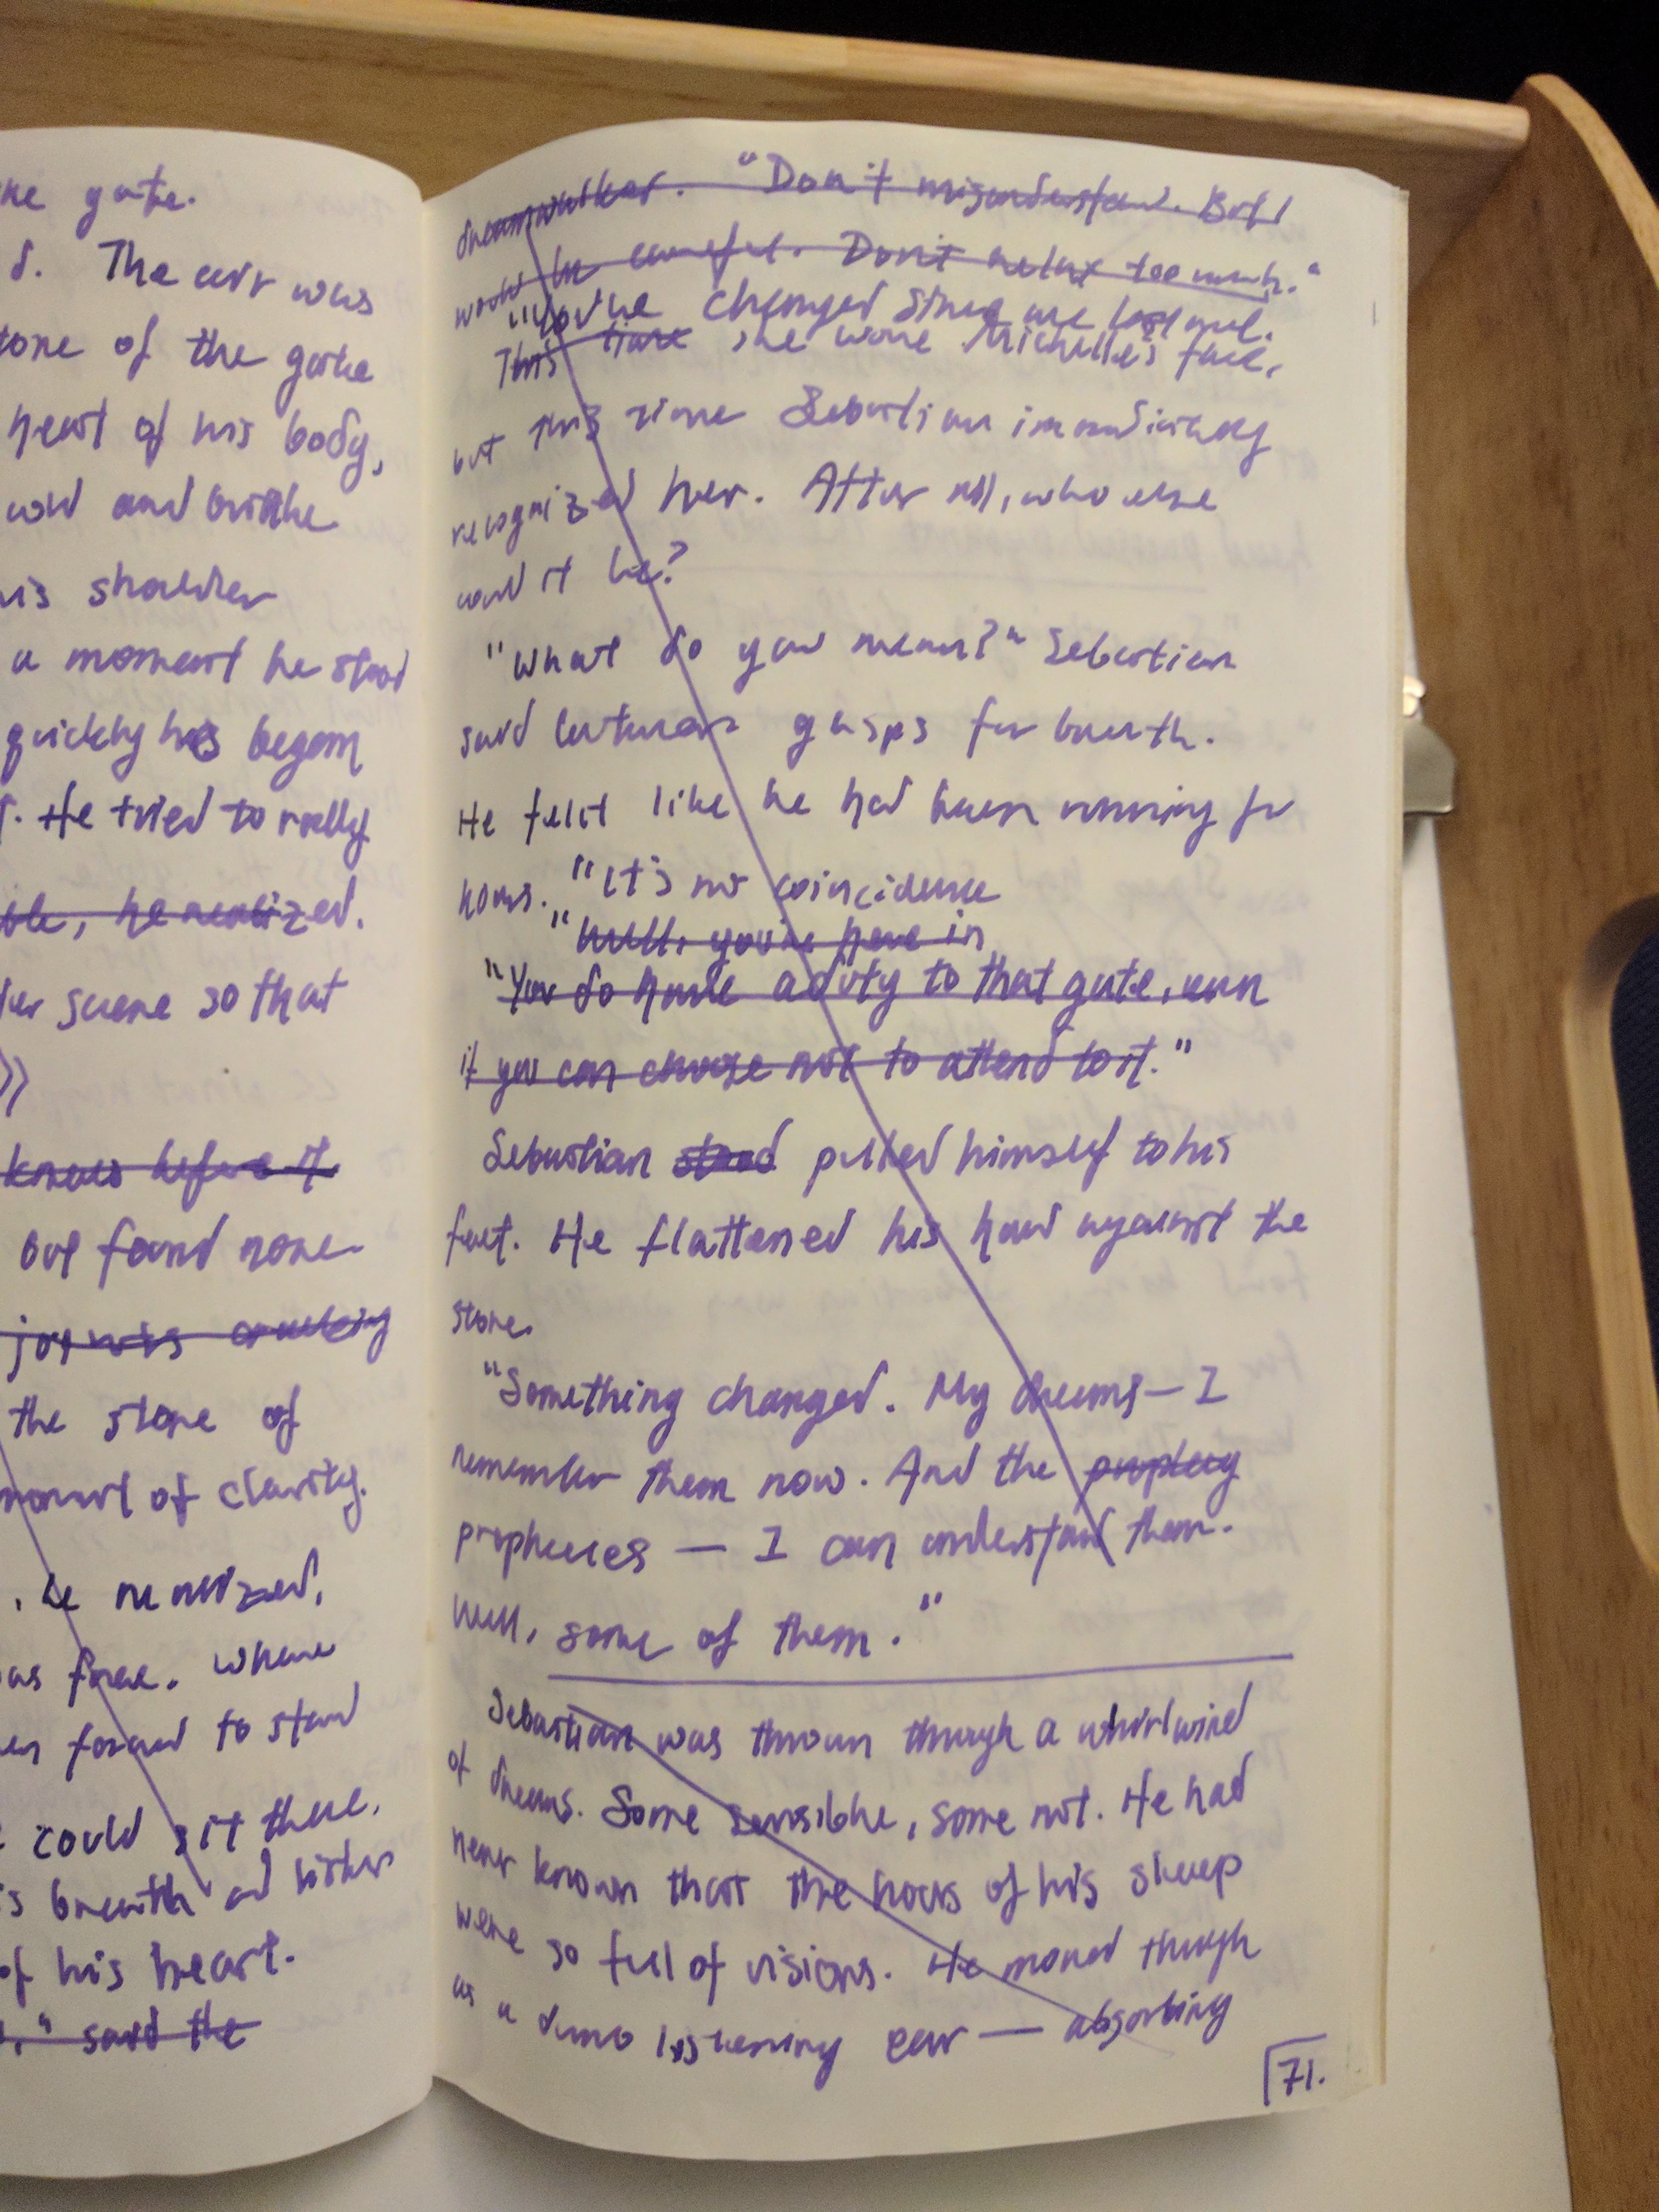 ne gate.
d. The air was
tone of the gate
heart of his body,
cold and brittle
his shoulder
a moment he stood
quickly his began
. He tried to rally
ble, he realized.
ier scene so that
knows before it
out found none
joints creaking
the stone of
moment of clarity.
. he realized,
as free. Where
en forced to stand
could sit there.
s breath and listen
of his heart.
," said the
dreamwalker. "Don't misunderstand. But
be careful. Don't relax too much."
"You've changed since we last met.
This time she wore Michelle's face,
but this time Sebastian immediately
recognized her. After all, who else
could it be?
"What do you mean?" Sebastian
said between gasps for breath.
He felt like he had been running for
hours. "It's no coincidence
"Well, you're here in
"You do have a duty to that gate, even
if you can choose not to attend to it."
Sebastian stood pulled himself to his
feet. He flattened his hand against the
stone.
"Something changed. My dreams — I
remember them now. And the prophecy
prophecies — I can understand them.
Well, some of them."
Sebastian was thrown through a whirlwind
of dreams. Some sensible, some not. He had
never known that the hours of his sleep
were so full of visions. He moved through
as a dumb listening ear — absorbing
71.